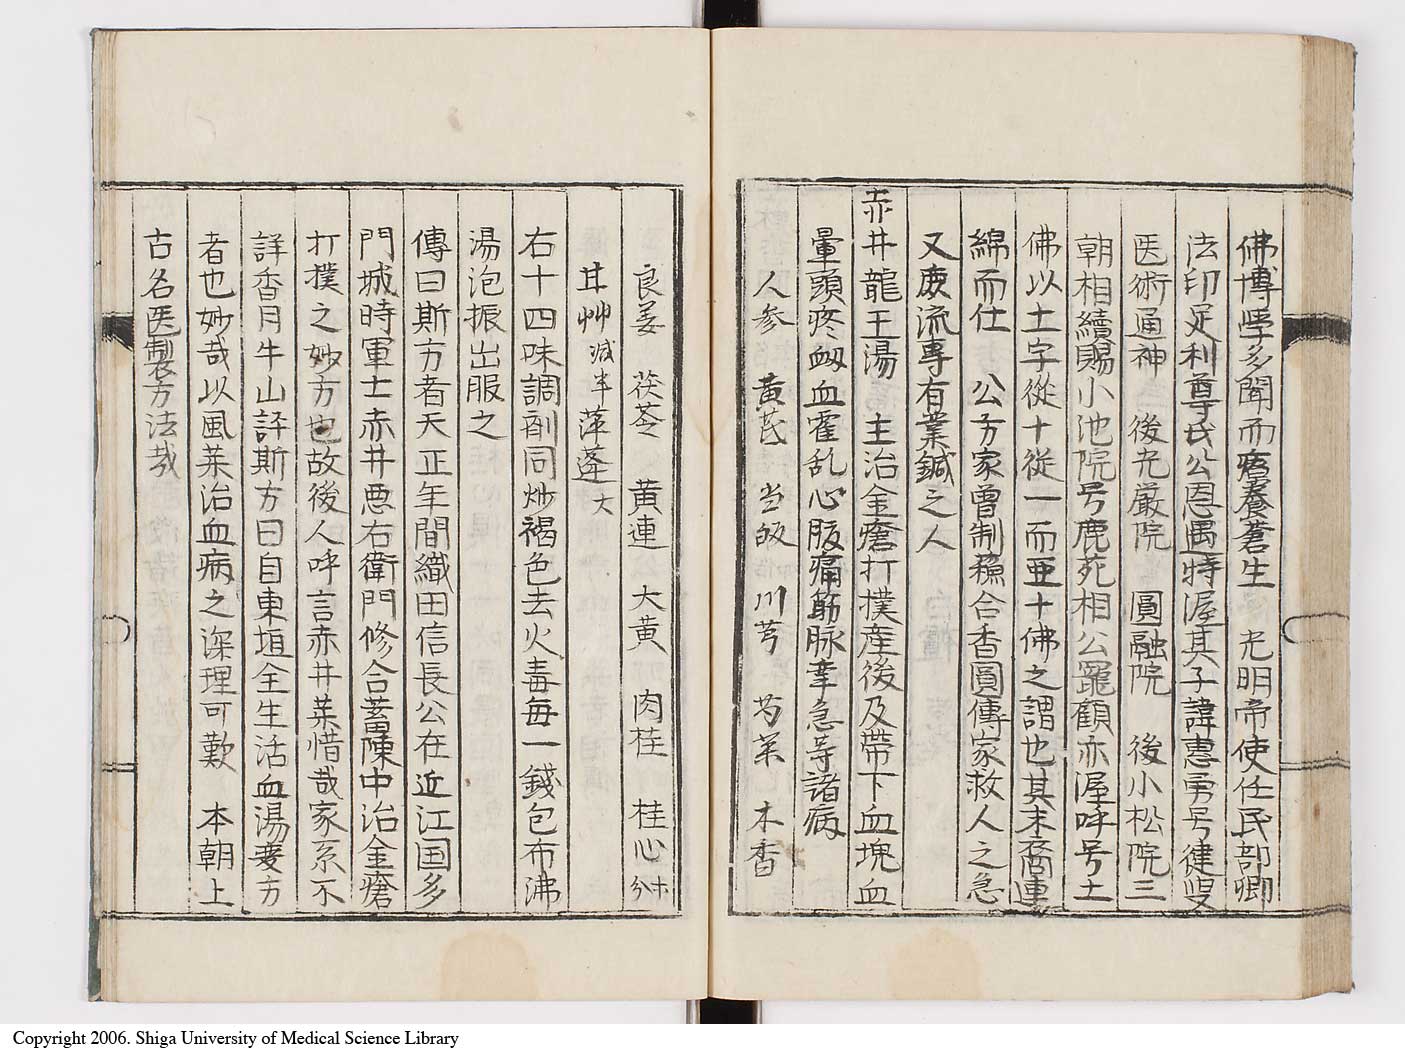 佛博学多聞而療養蒼生　光明帝使任民部卿
法印足利尊氏公恩遇特渥其子諱惠勇号健叟
医術通神　後光厳院　圓融院　後小松院三
朝相續賜小池院号鹿苑相公寵顧亦渥呼号土
佛以土字從十從一而亜十佛之謂也其末裔連
綿而仕　公方家曽制蘓合香圓傳家救人之急
又庻流專有業鍼之人
赤井龍王湯　主治金瘡打撲産後及帶下血塊血
暈頭疼衂血霍乱心腹痛筋脉牽急等諸病
人参　黄芪　当皈　川芎　芍薬　木香
良姜　茯苓　黄連　大黄　肉桂　桂心各十分
甘艸減半　萍蓬大
右十四味調剤同炒褐色去火毒毎一錢包布沸
湯泡振出服之
傳曰斯方者天正年間織田信長公在近江国多
門城時軍士赤井悪右衛門修合蓄陳中治金瘡
打撲之妙方也故後人呼言赤井薬惜哉家系不
詳香月牛山評斯方曰自東垣全生活血湯変方
者也妙哉以風薬治血病之深理可歎　本朝上
古名医製方法哉
Copyright 2006. Shiga University of Medical Science Library